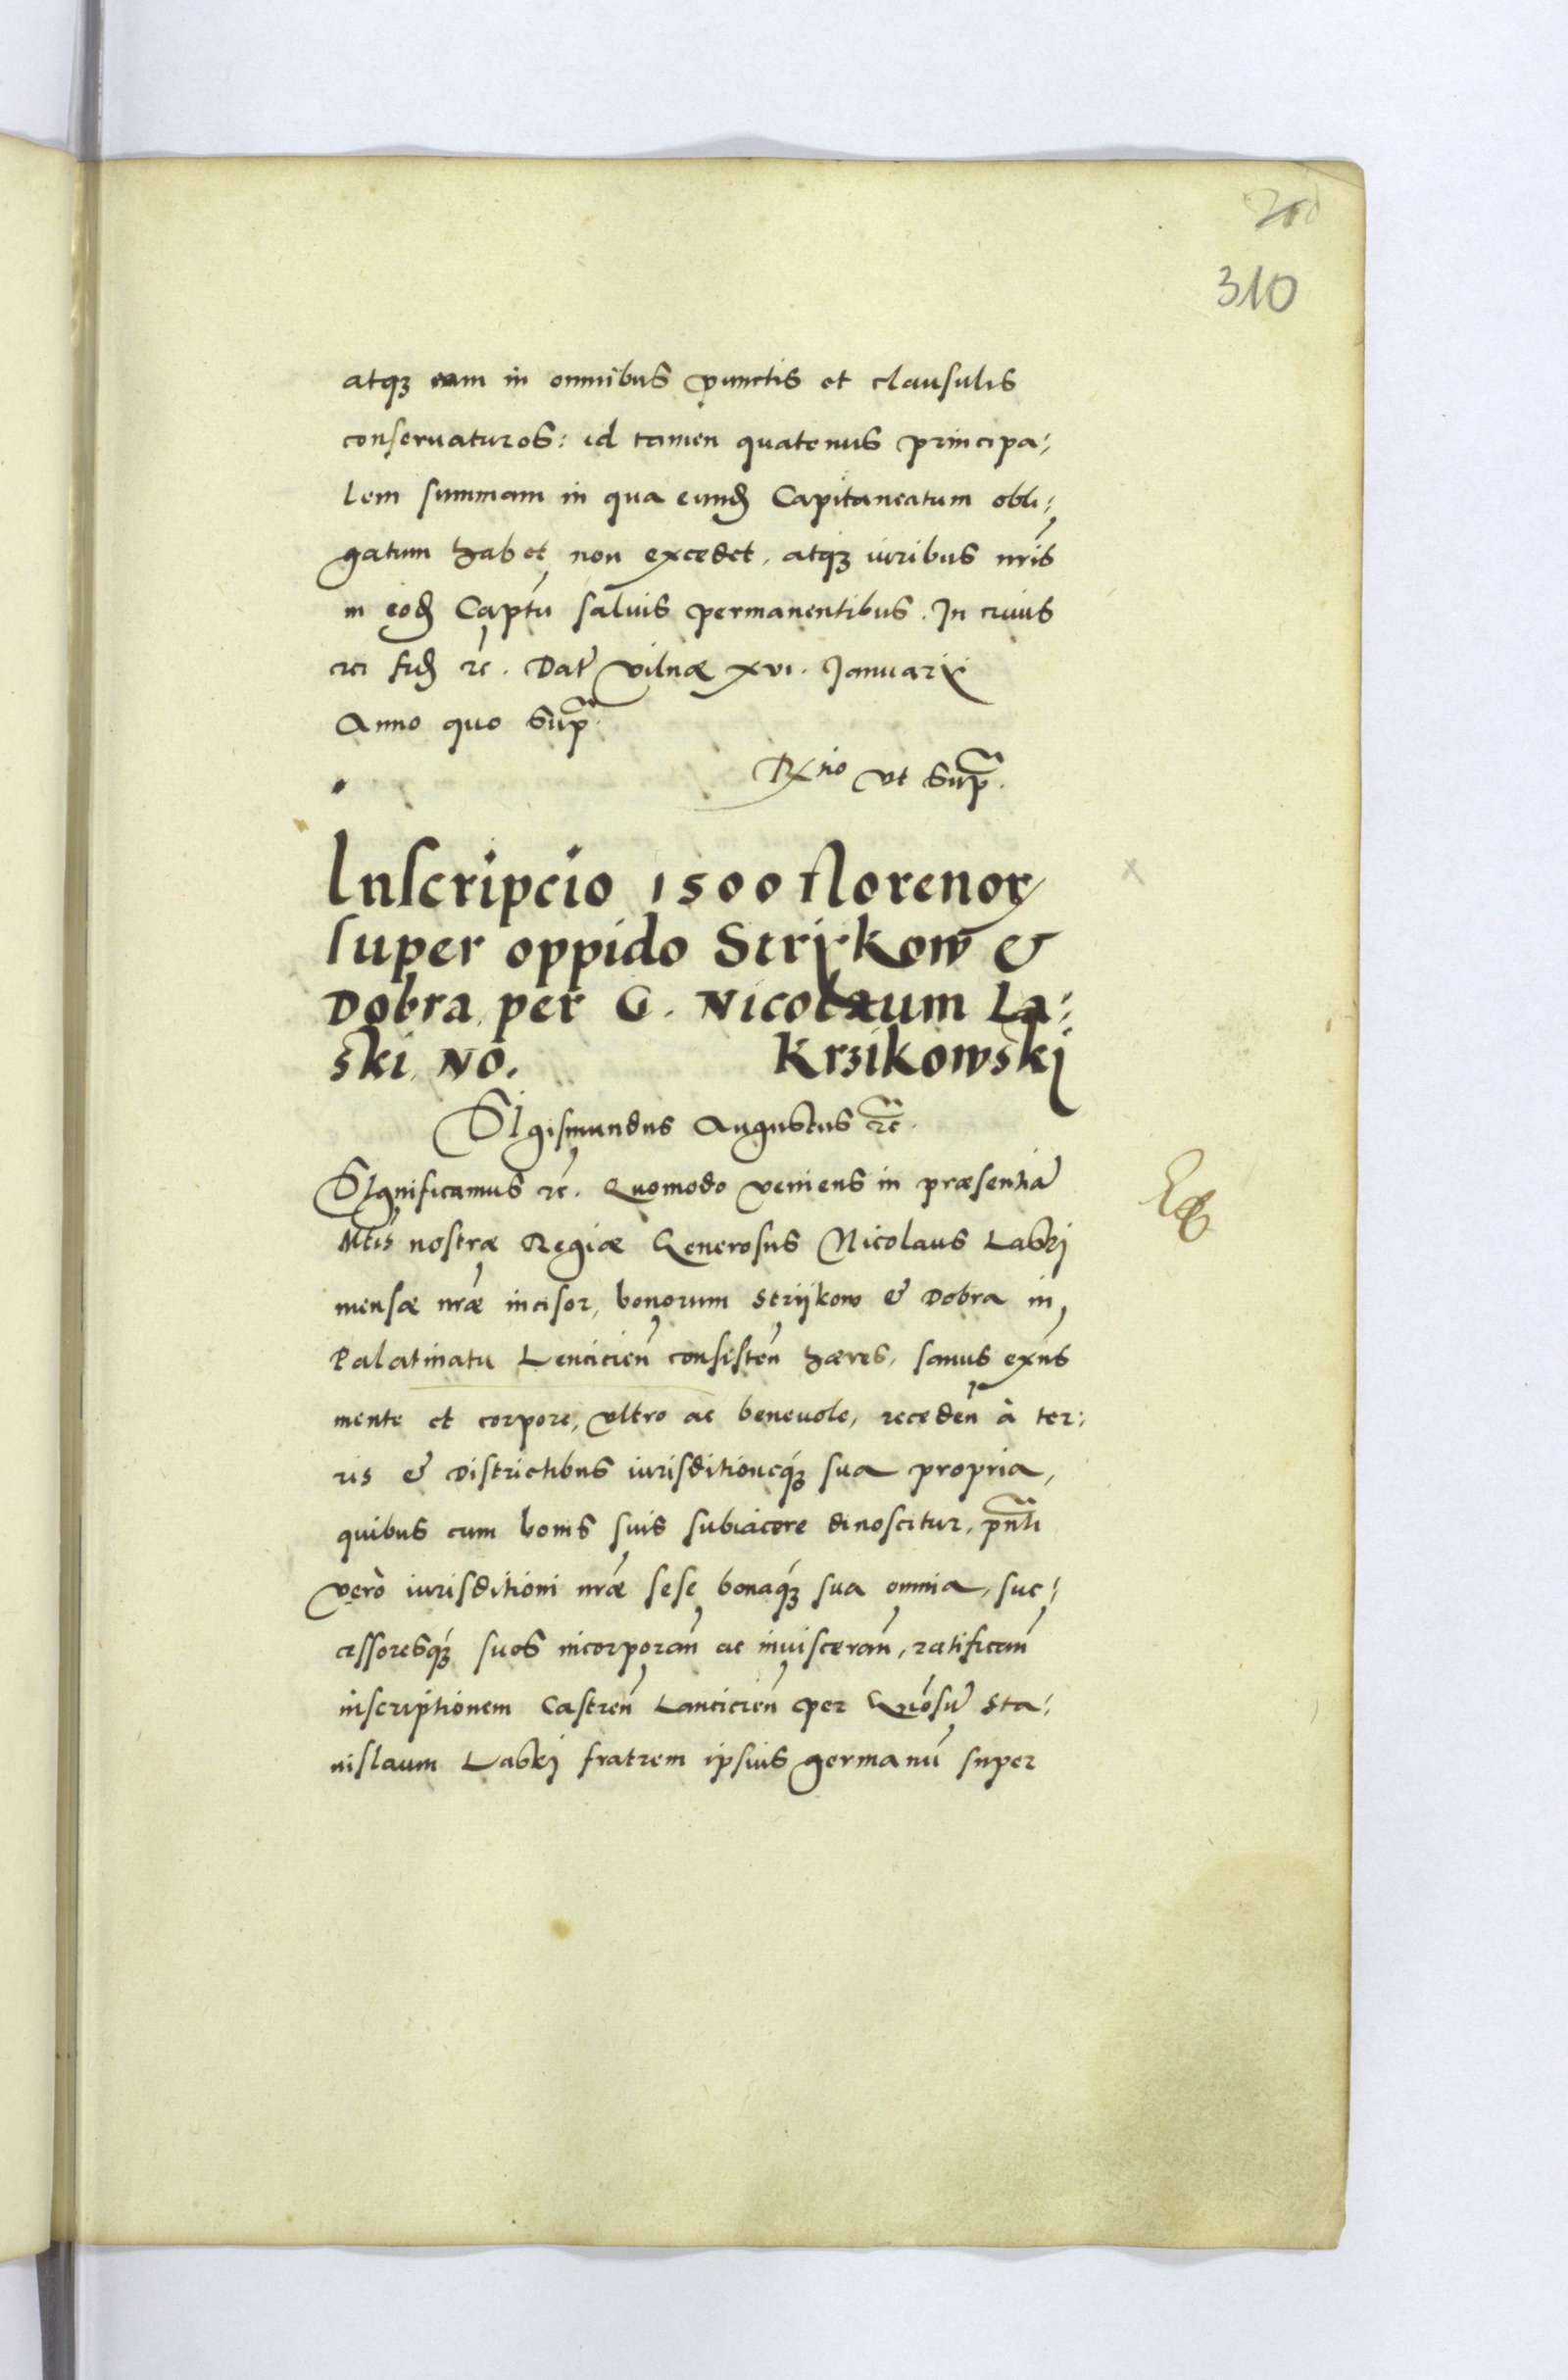 310
atqꝫ eam in omnibus punctis et clausulis
conseruaturos: id tamen quatenus principa:
lem summam in qua eund̃ Capitaneatum obli:
gatum habet non excedet. atqꝫ iuribus nr̃is
in eod̃ Captũ saluis permanentibus. In cuius
rei fid̃ rc̃. Dat̃ Vilnæ xvi. Januarij
Anno quo sup̃.
Rx̃no vt sup̃.
Inscripcio 1500 florenoꝝ
super oppido Strijkow &
Dobra per G. Nicolaum La:
ski No. Krzikowskj
SIgismundus Augustus rc̃.
SIgnificamus rc̃. Quomodo veniens in præsentiã
Mtis nostræ Regiæ Generosus Nicolaus Laskj
mensæ nr̃æ incisor, bonorum Strijkow & Dobra in
Palatinatu Lencicieñ consisteñ hæres, sanus exñs
mente et corpore, vltro ac beneuole, recedeñ à ter:
ris & districtibus iurisditioneqꝫ sua propria,
quibus cum bonis suis subiacere dinoscitur, p̃nti
verò iurisditioni nr̃æ sese bonaqꝫ sua omnia, suc:
cessoresqꝫ suos incorporañ ac inuiscerañ, ratificañ
inscriptionem Castreñ Lancicieñ per Gñosũ Sta:
nislaum Laskj fratrem ipsius germanũ super